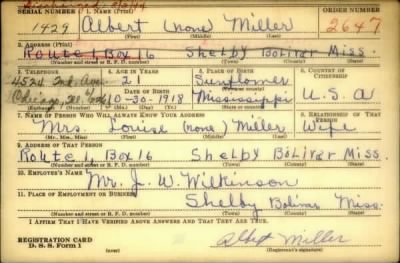 Discharged
SERIAL NUMBER 1. NAME (Print) ORDER NUMBER
1429 Albert (none) Miller 2647
2. ADDRESS (Print)
Route 1 Box 16 Shelby Bolivar Miss.
(Number and street or R. F. D. number) (Town) (County) (State)
3. TELEPHONE 4. AGE IN YEARS 5. PLACE OF BIRTH 6. COUNTRY OF CITIZENSHIP
21 Sunflower
DATE OF BIRTH (Town or county)
10-30-1918 Mississippi U.S.A
(Exchange) (Number) (Mo.) (Day) (Yr.) (State or country)
7. NAME OF PERSON WHO WILL ALWAYS KNOW YOUR ADDRESS 8. RELATIONSHIP OF THAT PERSON
Mrs. Louise (none) Miller Wife
(Mr., Mrs., Miss) (First) (Middle) (Last)
9. ADDRESS OF THAT PERSON
Route 1 Box 16 Shelby Bolivar Miss.
(Number and street or R. F. D. number) (Town) (County) (State)
10. EMPLOYER'S NAME
Mr. J. W. Wilkinson
11. PLACE OF EMPLOYMENT OR BUSINESS
Shelby Bolivar Miss.
(Number and street or R. F. D. number) (Town) (County) (State)
I AFFIRM THAT I HAVE VERIFIED ABOVE ANSWERS AND THAT THEY ARE TRUE.
REGISTRATION CARD
D. S. S. Form 1
Albert Miller
(Registrant's signature)